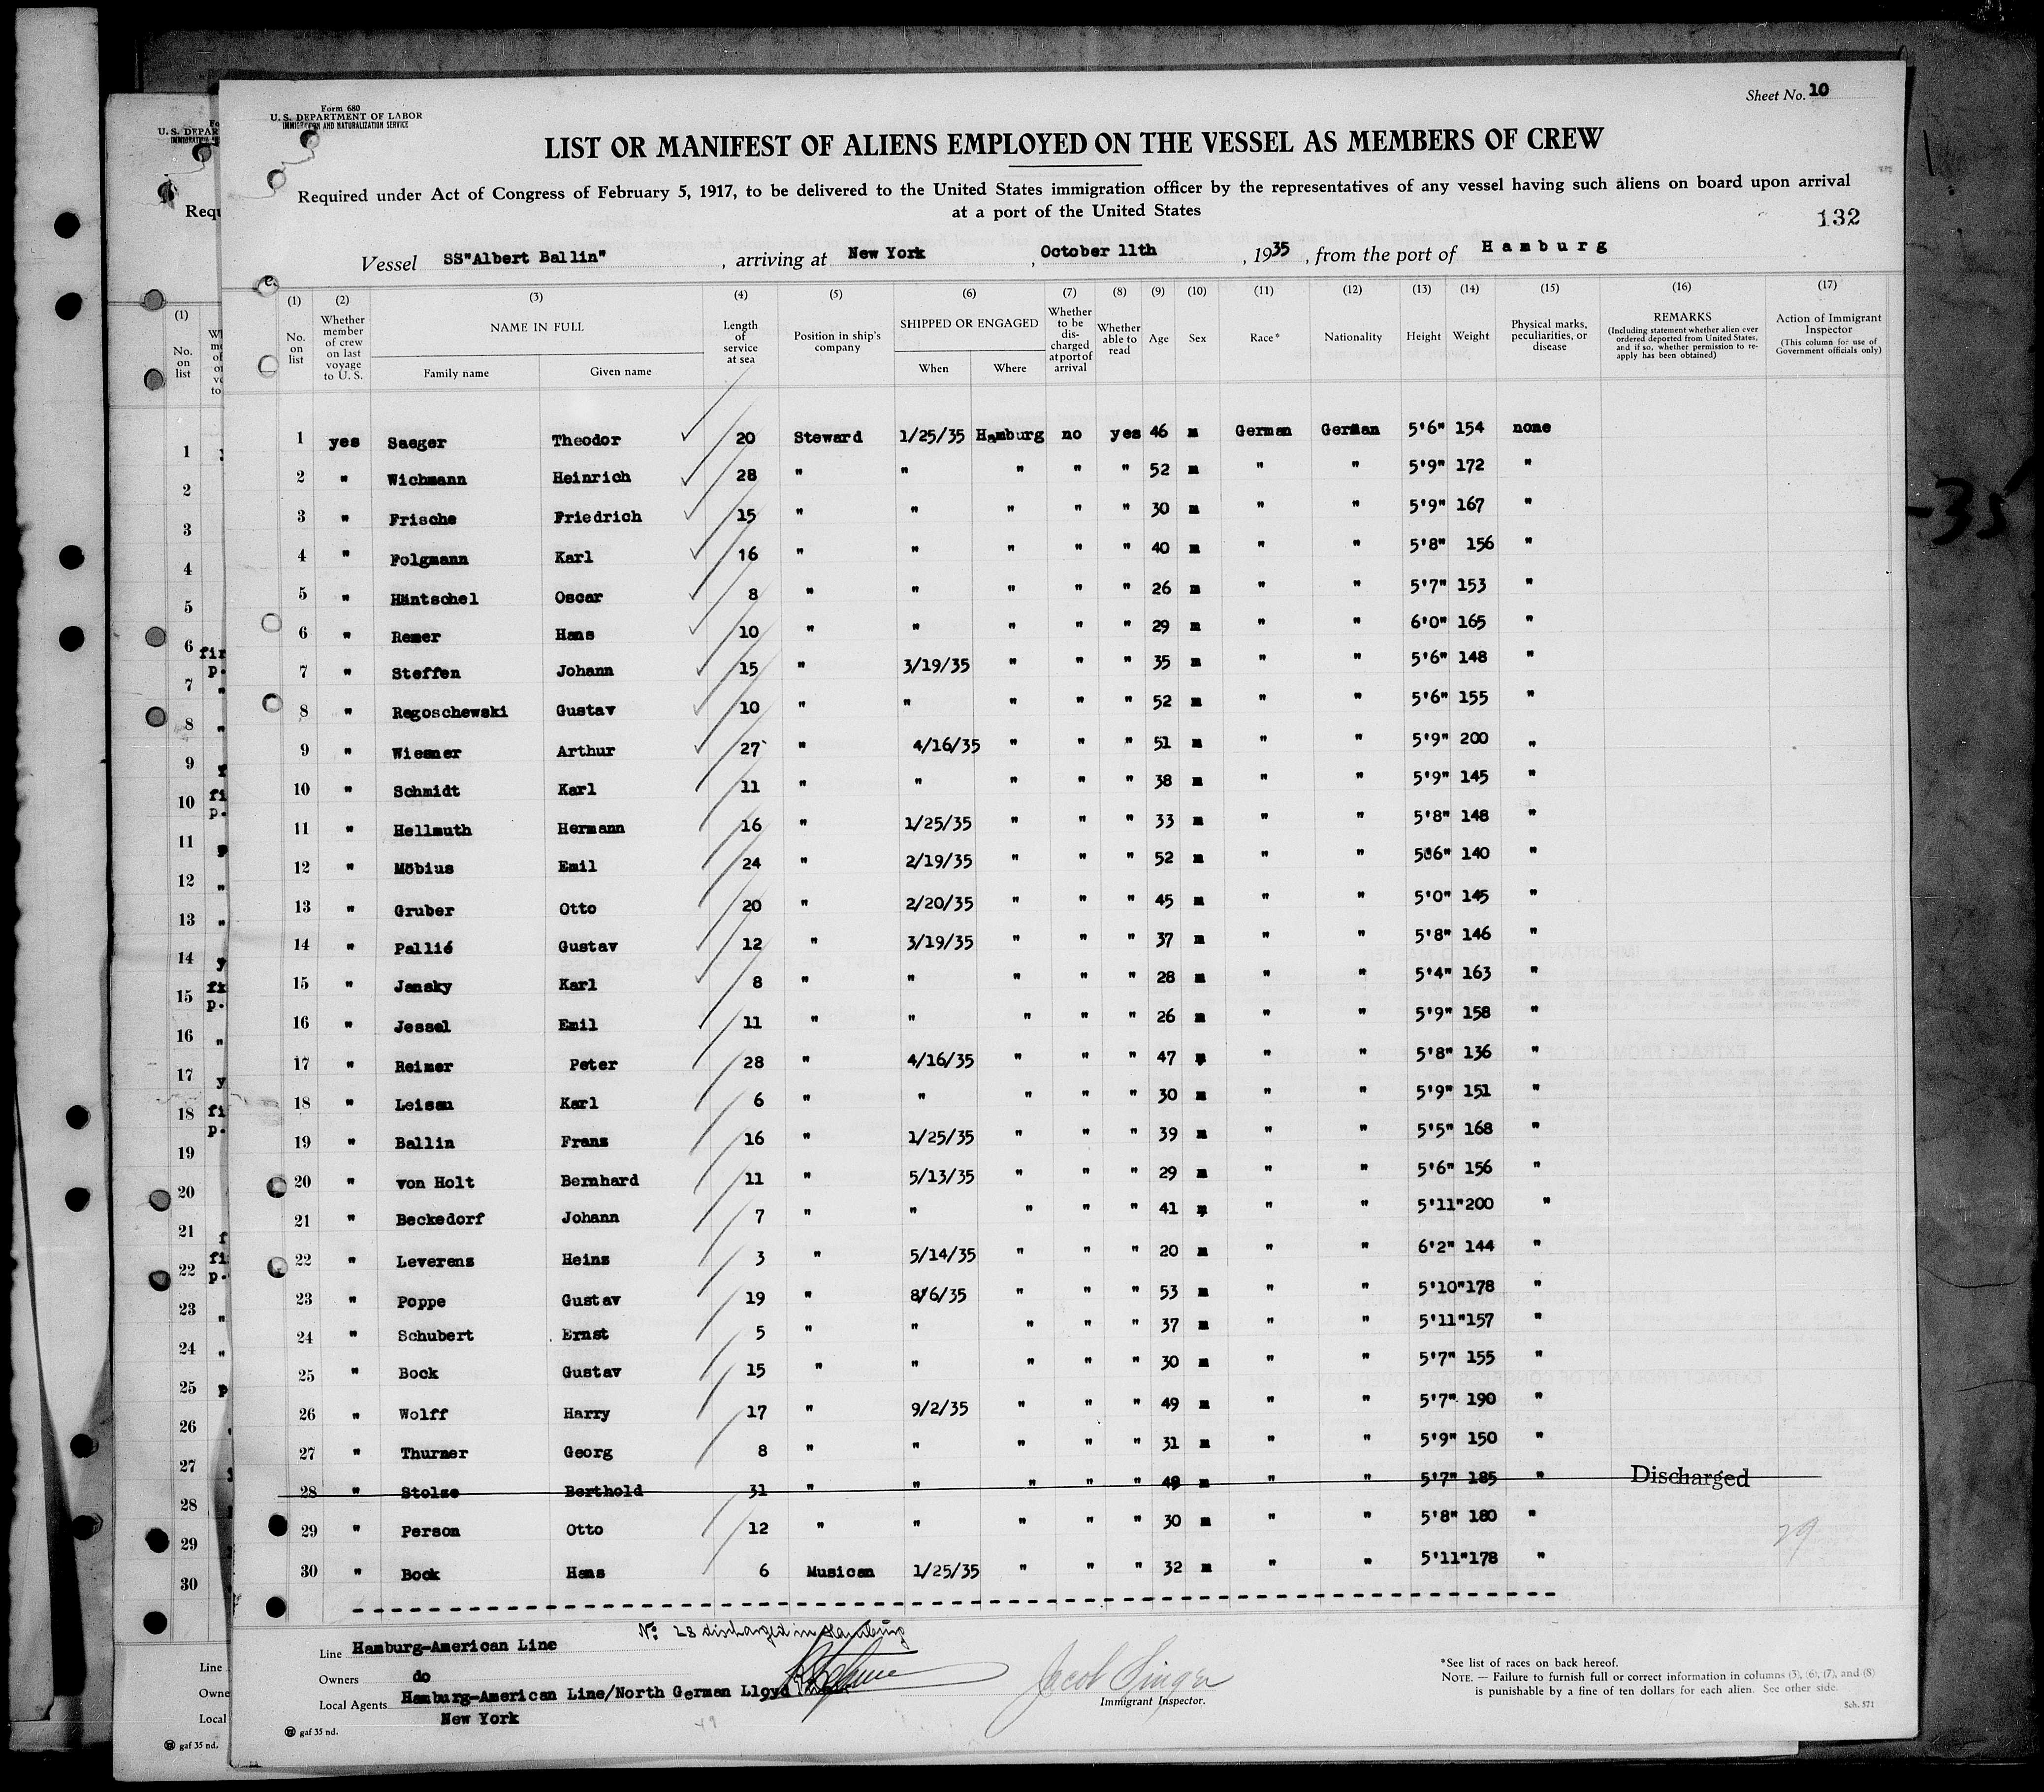 Sheet No. 10
Form 680
U. S. DEPARTMENT OF LABOR
IMMIGRATION AND NATURALIZATION SERVICE
LIST OR MANIFEST OF ALIENS EMPLOYED ON THE VESSEL AS MEMBERS OF CREW
Required under Act of Congress of February 5, 1917, to be delivered to the United States immigration officer by the representatives of any vessel having such aliens on board upon arrival
at a port of the United States
132
Vessel SS"Albert Ballin" , arriving at New York , October 11th , 1935 , from the port of Hamburg
(1) (2) (3) (4) (5) (6) (7) (8) (9) (10) (11) (12) (13) (14) (15) (16) (17)
No. on list Whether member of crew on last voyage to U. S. NAME IN FULL Family name Given name Length of service at sea Position in ship's company SHIPPED OR ENGAGED When Where Whether to be discharged at port of arrival Whether able to read Age Sex Race* Nationality Height Weight Physical marks, peculiarities, or disease REMARKS (Including statement whether alien ever ordered deported from United States, and if so, whether permission to reapply has been obtained) Action of Immigrant Inspector (This column for use of Government officials only)
1 yes Saeger Theodor 20 Steward 1/25/35 Hamburg no yes 46 m German German 5'6" 154 none
2 " Wichmann Heinrich 28 " " " " " 52 m " " 5'9" 172 "
3 " Frische Friedrich 15 " " " " " 30 m " " 5'9" 167 "
4 " Folgmann Karl 16 " " " " " 40 m " " 5'8" 156 "
5 " Häntschel Oscar 8 " " " " " 26 m " " 5'7" 153 "
6 " Remer Hans 10 " " " " " 29 m " " 6'0" 165 "
7 " Steffen Johann 15 " 3/19/35 " " " 35 m " " 5'6" 148 "
8 " Regoschewski Gustav 10 " " " " " 52 m " " 5'6" 155 "
9 " Wiesner Arthur 27 " 4/16/35 " " " 51 m " " 5'9" 200 "
10 " Schmidt Karl 11 " " " " " 38 m " " 5'9" 145 "
11 " Hellmuth Hermann 16 " 1/25/35 " " " 33 m " " 5'8" 148 "
12 " Möbius Emil 24 " 2/19/35 " " " 52 m " " 5'6" 140 "
13 " Gruber Otto 20 " 2/20/35 " " " 45 m " " 5'0" 145 "
14 " Pallié Gustav 12 " 3/19/35 " " " 37 m " " 5'8" 146 "
15 " Jansky Karl 8 " " " " " 28 m " " 5'4" 163 "
16 " Jessel Emil 11 " " " " " 26 m " " 5'9" 158 "
17 " Reimer Peter 28 " 4/16/35 " " " 47 m " " 5'8" 136 "
18 " Leisau Karl 6 " " " " " 30 m " " 5'9" 151 "
19 " Ballin Franz 16 " 1/25/35 " " " 39 m " " 5'5" 168 "
20 " von Holt Bernhard 11 " 5/13/35 " " " 29 m " " 5'6" 156 "
21 " Beckedorf Johann 7 " " " " " 41 m " " 5'11" 200 "
22 " Leverenz Heinz 3 " 5/14/35 " " " 20 m " " 6'2" 144 "
23 " Poppe Gustav 19 " 8/6/35 " " " 53 m " " 5'10" 178 "
24 " Schubert Ernst 5 " " " " " 37 m " " 5'11" 157 "
25 " Bock Gustav 15 " " " " " 30 m " " 5'7" 155 "
26 " Wolff Harry 17 " 9/2/35 " " " 49 m " " 5'7" 190 "
27 " Thurner Georg 8 " " " " " 31 m " " 5'9" 150 "
28 " Stolze Berthold 31 " " " " " 48 m " " 5'7" 185 " Discharged
29 " Person Otto 12 " " " " " 30 m " " 5'8" 180 " 29
30 " Bock Hans 6 Musican 1/25/35 " " " 32 m " " 5'11" 178 "
No: 28 discharged in Hamburg
Line Hamburg-American Line
Owners do
Local Agents Hamburg-American Line/North German Lloyd
New York
Jacob Singer
Immigrant Inspector.
*See list of races on back hereof.
NOTE. — Failure to furnish full or correct information in columns (3), (6), (7), and (8)
is punishable by a fine of ten dollars for each alien. See other side.
Sch. 571
gaf 35 nd.
-35